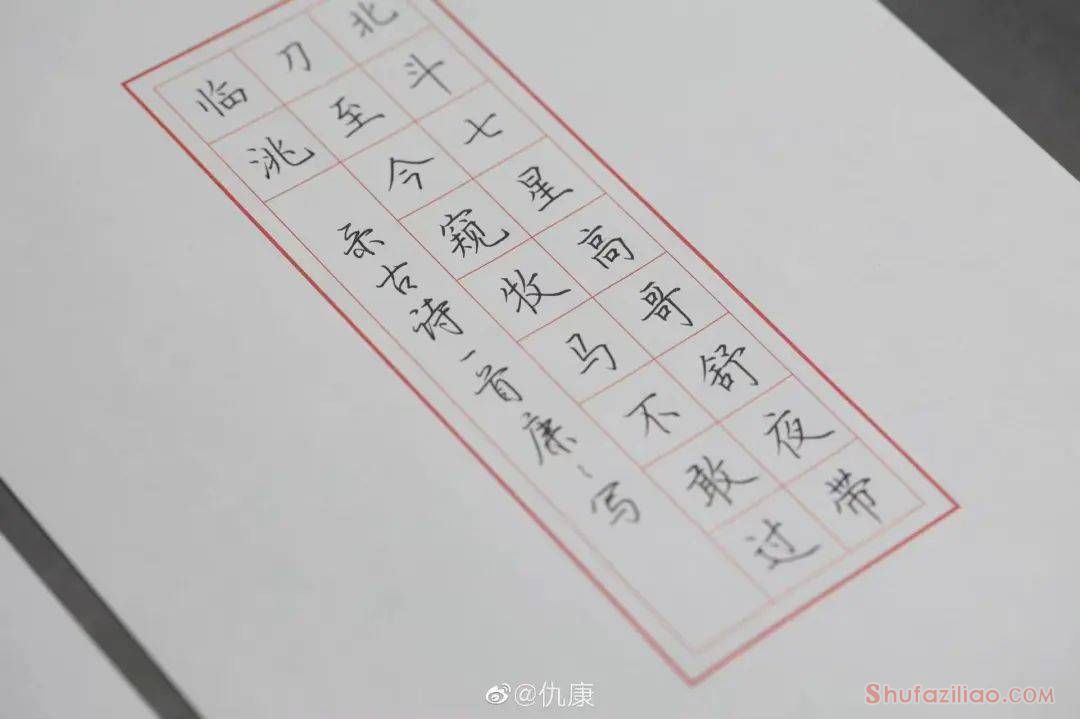 北斗七星高哥舒夜带
刀至今窥牧马不敢过
临洮
录古诗一首康〻写
@仇康
SHUFAZILIAO.COM